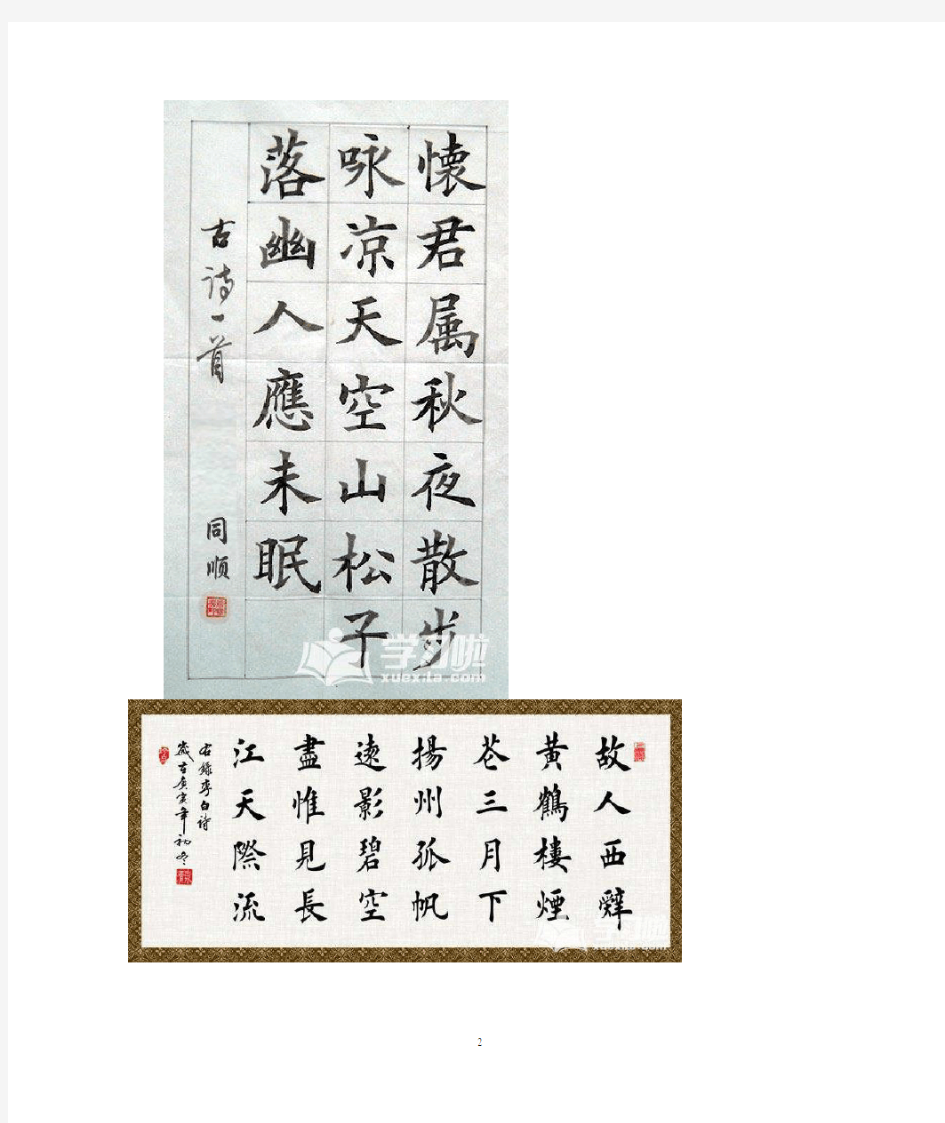 懷君属秋夜散步
咏凉天空山松子
落幽人應未眠
古诗一首
同顺
学习啦
xuexila.com
故人西辭
黄鶴樓煙
花三月下
揚州孤帆
遠影碧空
盡惟見長
江天際流
右錄李白詩
歲在庚寅年初冬
2